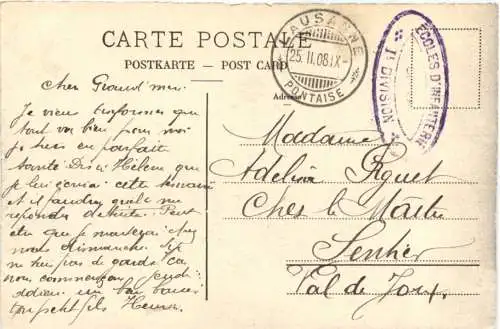 CARTE POSTALE
POSTKARTE — POST CARD
Adresse
LAUSANNE
25. II. 08. IX-
PONTAISE
ECOLES D'INFANTERIE
Ie DIVISION
Cher Grand'mère
Je viens t'informer que
tout va bien pour moi
je suis en parfait
santé Dis à Hélène que
je lui écrirai cette semaine
et il faudra qu'elle me
réponde de suite. Peut
être que je
nous dimanche si je
ne suis pas de garde car
nous commençons jeudi
un bon baiser
ton petit fils Henri
Madame
Adeline Piguet
Chez le Maître
Sentier
Val de Joux